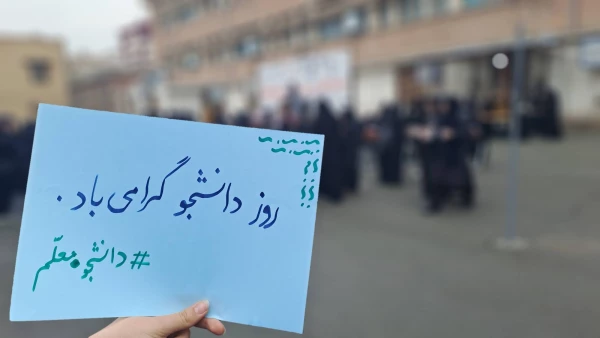 روز دانشجو گرامی باد.
#دانشجو•معلّم